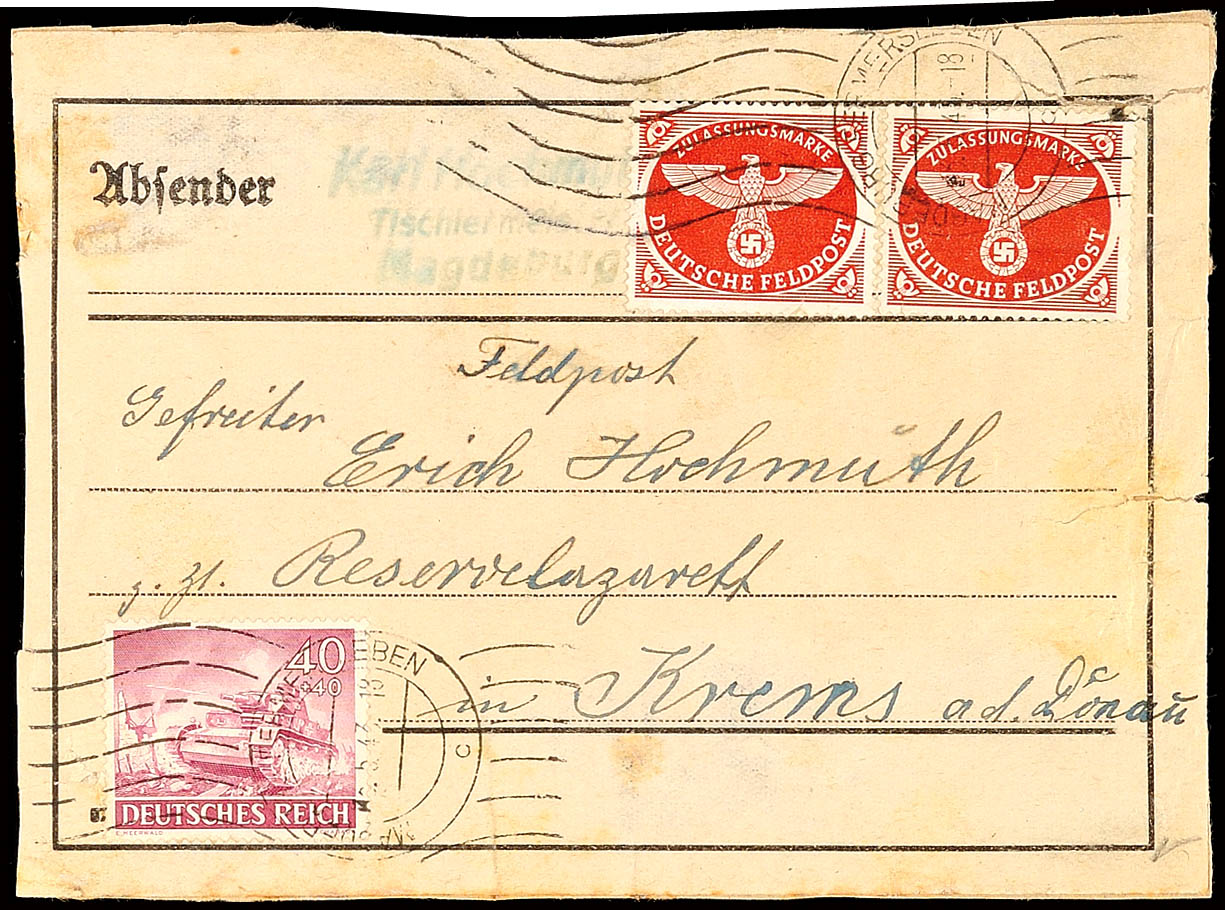 Absender
Karl
Tischlermeister
Magdeburg
ZULASSUNGSMARKE
DEUTSCHE FELDPOST
ZULASSUNGSMARKE
DEUTSCHE FELDPOST
Feldpost
Gefreiter
Erich Hochmuth
z. Zt. Reservelazarett
in Krems a.d. Donau
40
+40
DEUTSCHES REICH
E.MEERWALD
c